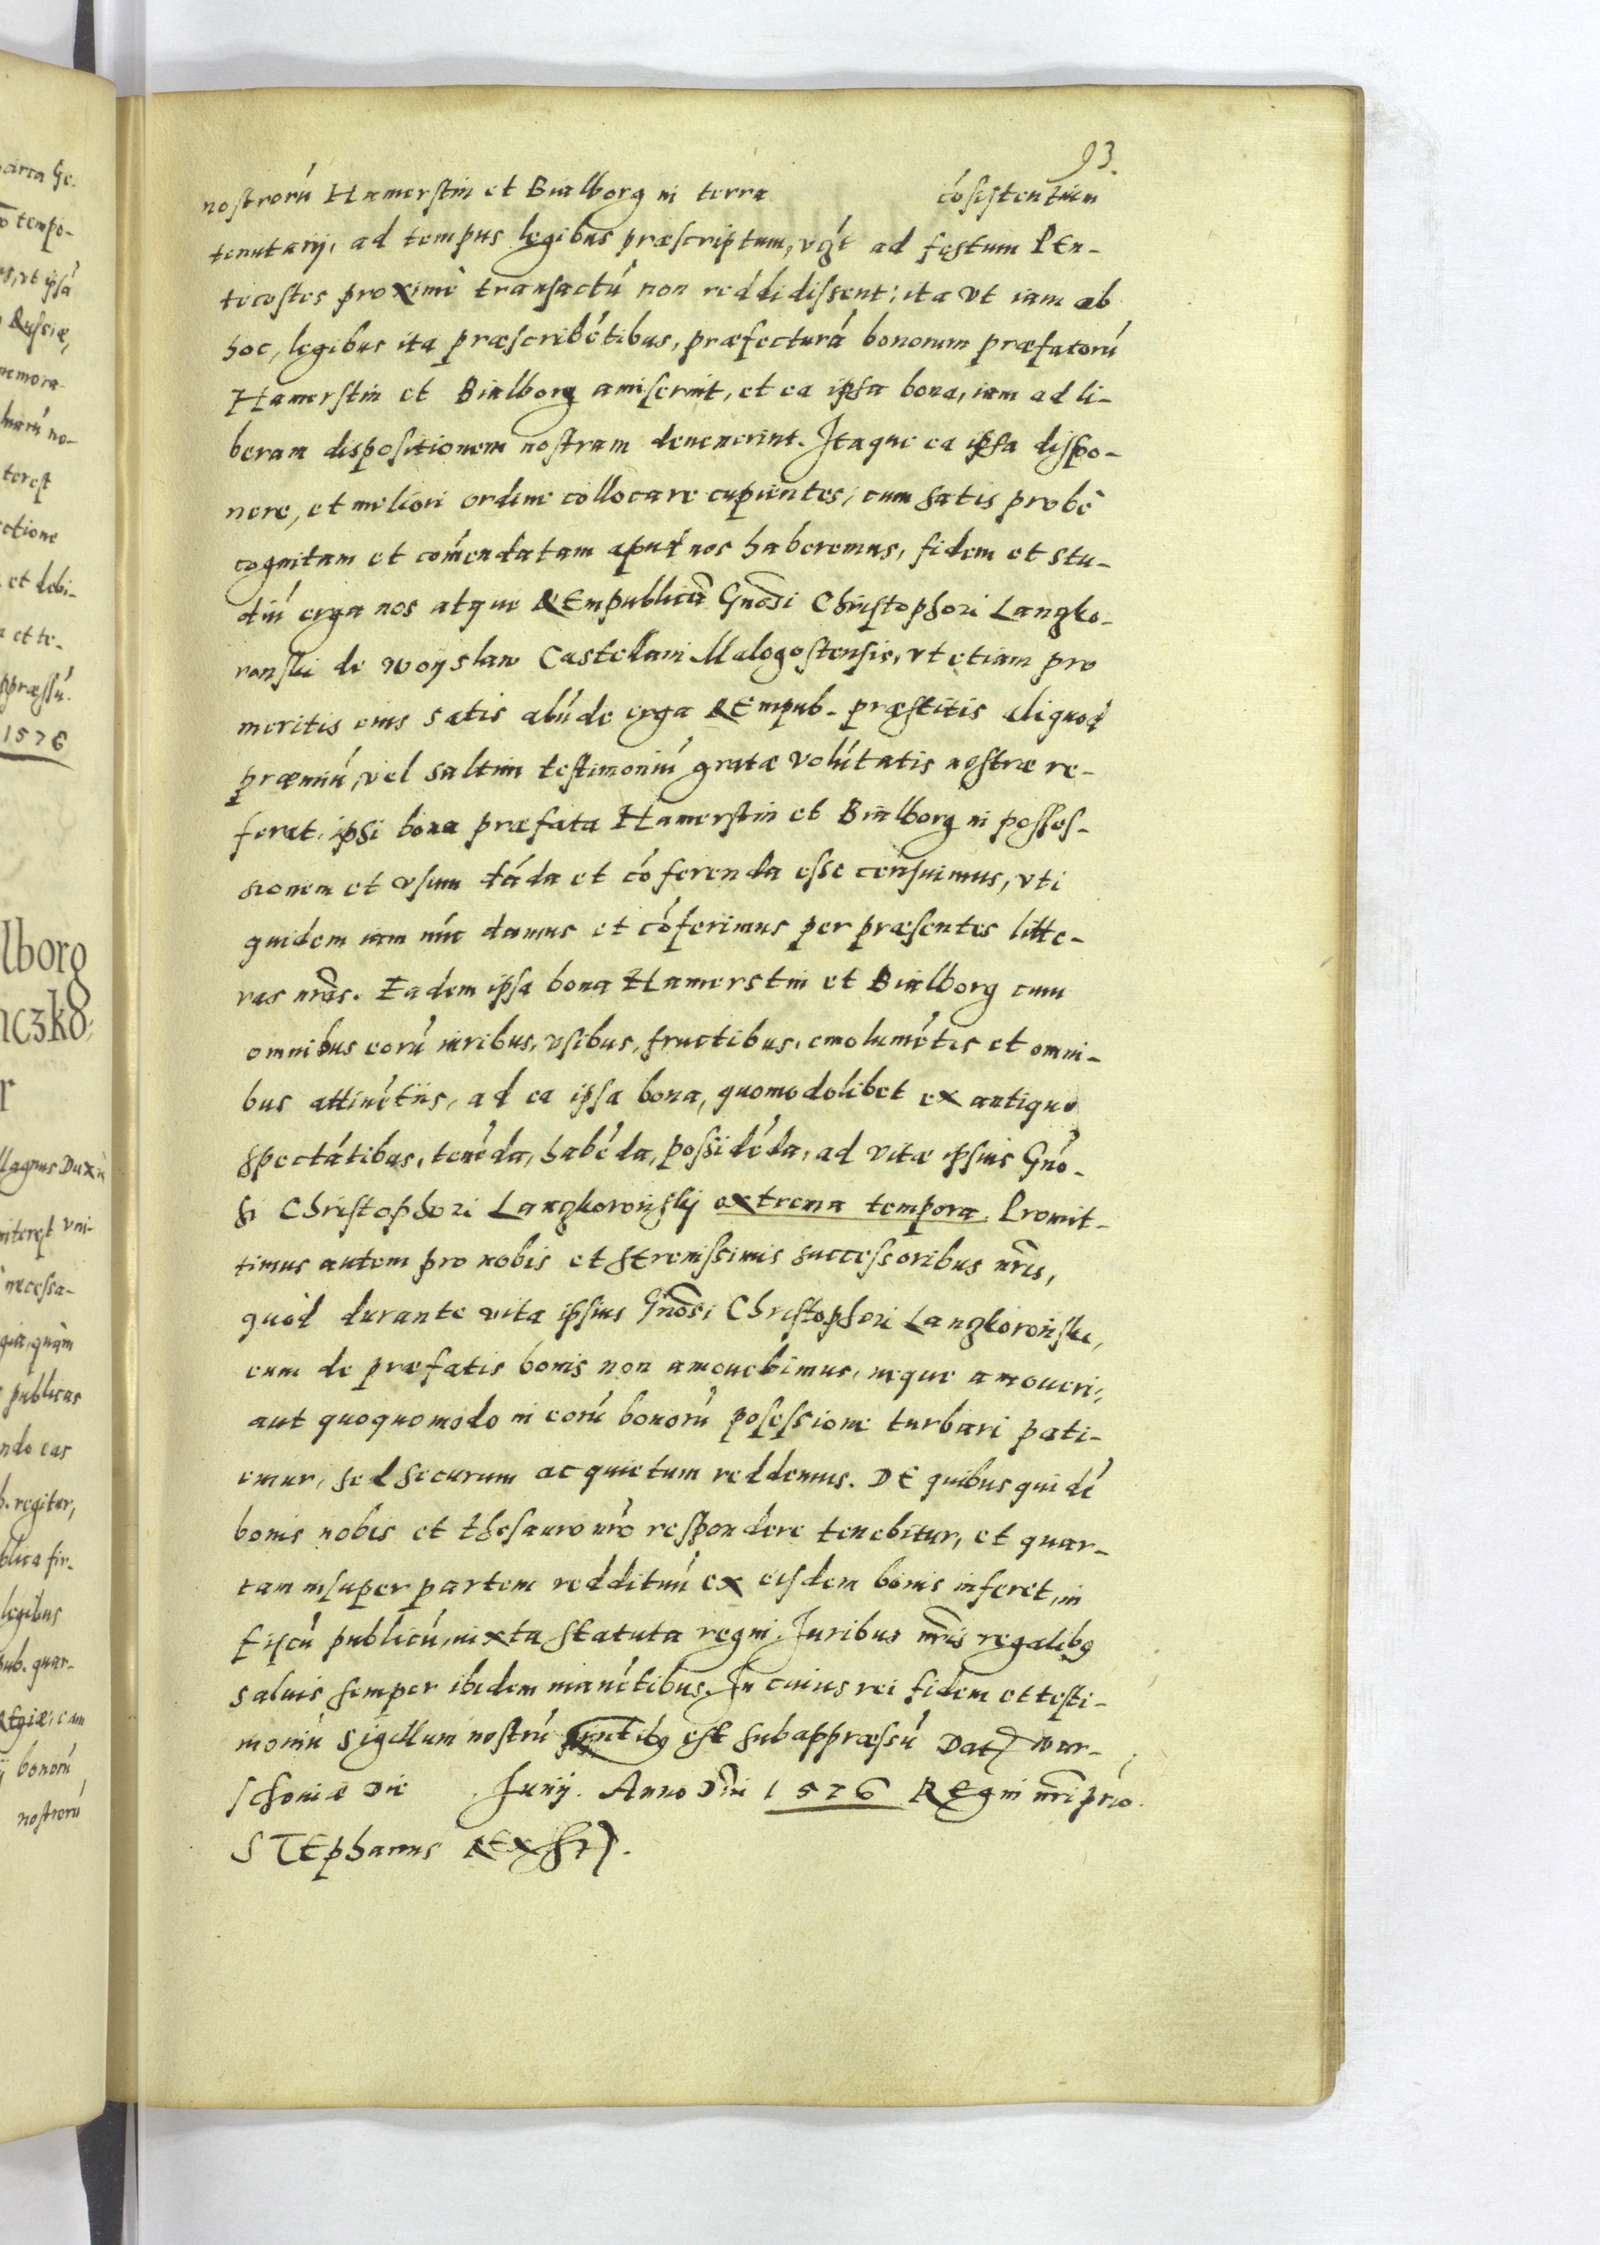 93.
nostrorú Hamerstin et Bialborg in terra cósistentium
tenutarij, ad tempus legibus præscriptum, vgt ad festum PEn-
tecostes proximè transactú non reddidissent; ita vt iam ab
hoc, legibus ita præscribétibus, præfecturá bonorum præfatorú
Hamerstin et Bialborg amiserint, et ea ipsa bona, iam ad li-
beram dispositionem nostram deuenerint. Itaque ea ipsa dispo-
nere, et meliori ordine collocare cupientes, cum satis probè
cognitam et comendatam apud nos haberemus, fidem et stu-
diú erga nos atque REmpublicã Gnosi Christophori Langko-
ronski de Woyslaw Castellani Malogostensis, vt etiam pro
meritis eius satis abúde erga REmpub. præstitis aliquod
præmiú, vel saltim testimoniú gratæ volútatis nostræ re-
feret, ipsi bona præfata Hamerstin et Bialborg in posses-
sionem et vsum dáda et cóferenda esse censuimus, vti
quidem iam núc damus et cóferimus per præsentes litte-
ras nrãs. Eadem ipsa bona Hamerstin et Bialborg cum
omnibus eorú iuribus, vsibus, fructibus, emolumétis et omni-
bus attinétiis, ad ea ipsa bona, quomodolibet ex antiquo
spectátibus, tenéda, habéda, possidéda, ad vitæ ipsius Gno-
si Christophori Langkorońskij extrema tempora. Promit-
timus autem pro nobis et SErenissimis successoribus nris,
quòd durante vita ipsius Gnosi Christophori Langkoroński,
eum de præfatis bonis non amouebimus, neque amoueri,
aut quoquomodo in eorú bonorú posessione turbari pati-
emur, sed securum ac quietum reddemus. DE quibus quidé
bonis nobis et thesauro nro respondere tenebitur, et quar-
tam insuper partem reddituú ex eisdem bonis inferet, in
Fiscú publicú, iuxta statuta regni, Iuribus nris regalibq
saluis semper ibidem manétibus. In cuius rei fidem et testi-
moniú Sigillum nostrú pntibq est subappræssú Dat War-
schouiæ Die Junij. Anno Dni 1576 REgni nri prio.
STEphanus REx sst.